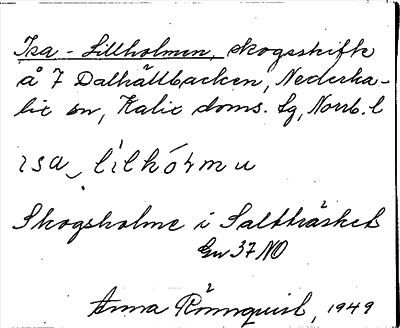 Isa-Lillholmen, skogsskifte
å 7 Dalhällbacken, Nederka-
lix sn, Kalix doms. lg, Norrb. l
ısa lìlhórmu
Skogsholme i Saltträsket
Gv 37 NO
Anna Rönnquist, 1949